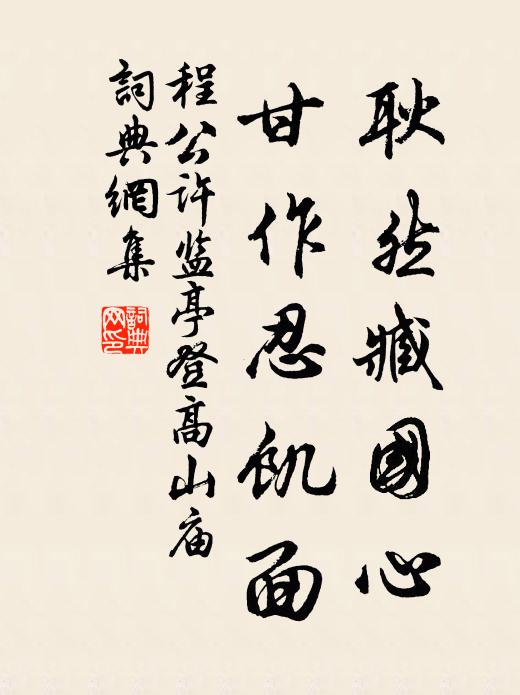 耿然臧國心
甘作忍飢面
程公许监亭登高山庙
詞典網集
詞典网印